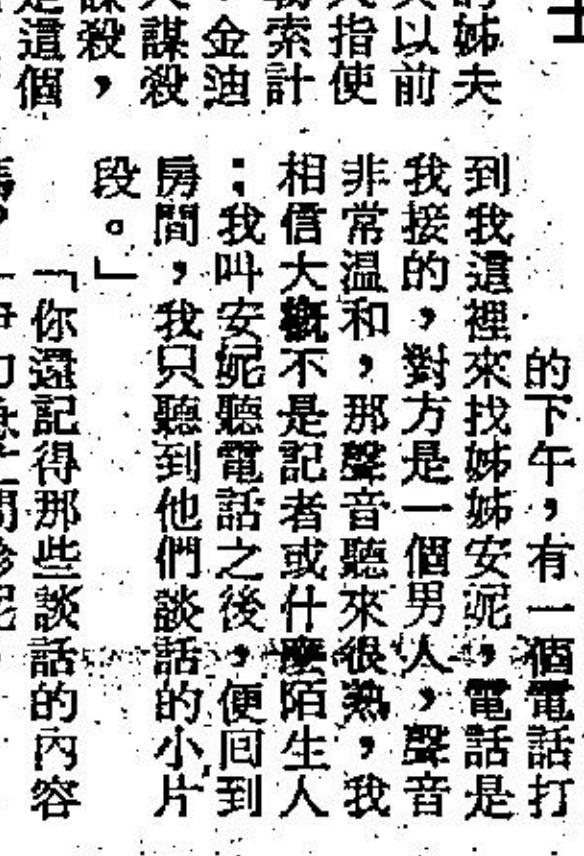 姊夫
以前
指使
索計
金迪
謀殺
殺，
這個
的下午，有一個電話打
到我這裡來找姊姊安妮，電話是
我接的，對方是一個男人，聲音
非常温和，那聲音聽來很熟，我
相信大概不是記者或什麼陌生人
；我叫安妮聽電話之後，便回到
房間，我只聽到他們談話的小片
段。」
「你還記得那些談話的內容